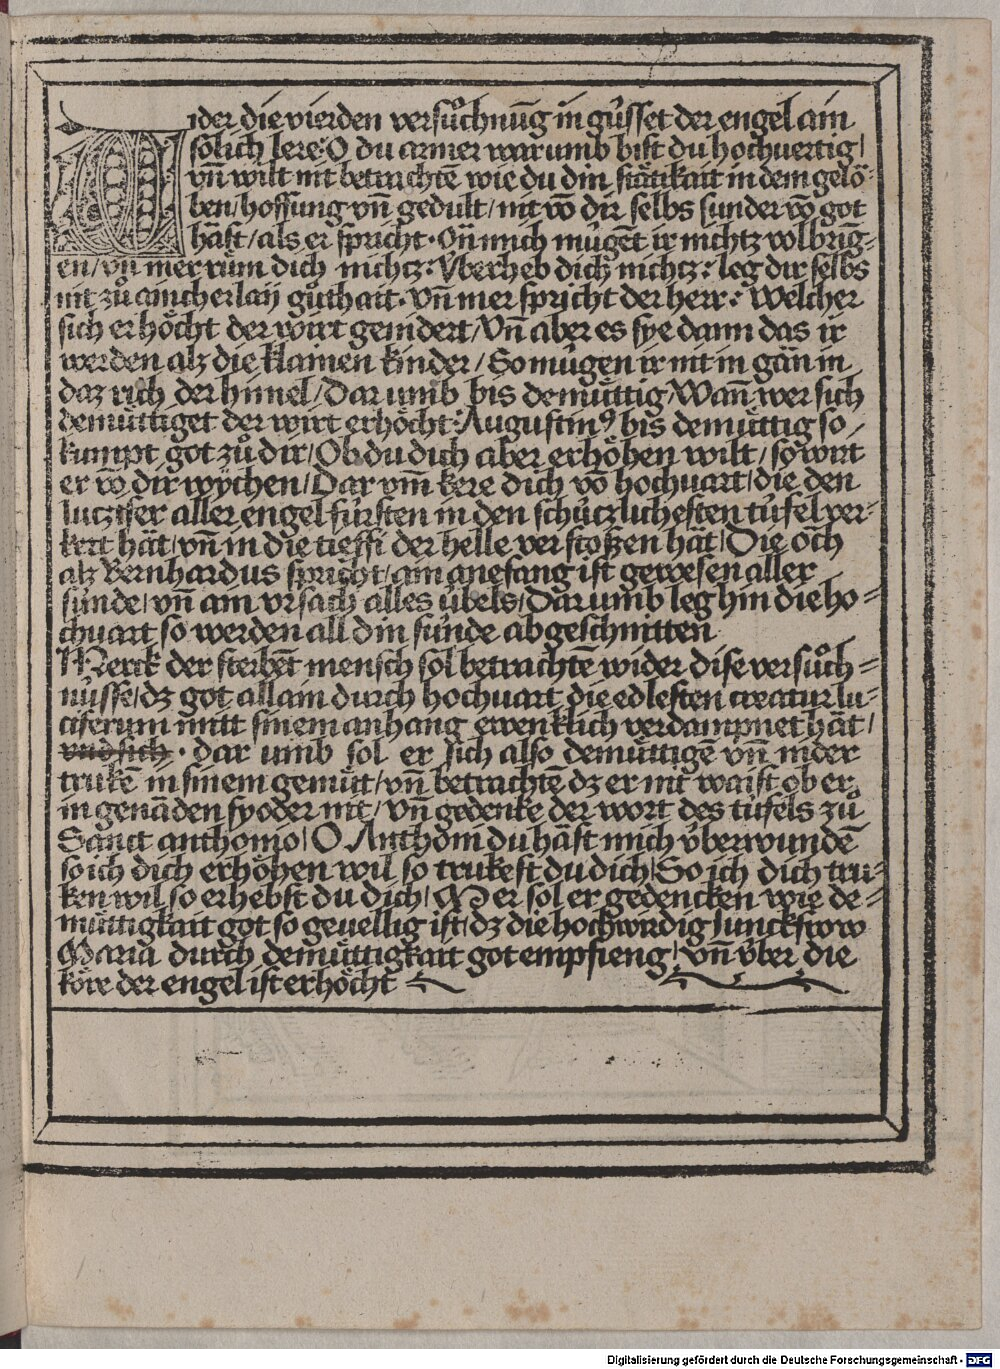 Wider die vierden versůchnūg in gůsset der engel ain
sölich lere: O du armer war umb bist du hochuertig /
vn̄ wilt nit betrachtē wie du din stätikait in dem gelö-
ben / hoffung vn̄ gedult / nit vō dir selbs sunder vō got
häst / als er spricht · On̄ mich mügēt ir nichtz volbrīg-
en / vn̄ mer rům dich nichtz : Vberheb dich nichtz : leg dir selbs
nit zů aincherlaij gůthait · vn̄ mer spricht der herr : Welcher
sich erhöcht der wirt genidert / Vn̄ aber es sye dann das ir
werden alz die klainen kinder / So mügen ir nit in gān in
daz rich der himel / Dar umb bis demüttig / Wan̄ wer sich
demüttiget der wirt erhöcht : Augustinꝰ bis demüttig so
kumpt got zů dir / Ob du dich aber erhöhen wilt / so wirt
er vō dir wÿchen / Dar vm̄ kere dich vō hochuart / die den
lutzifer aller engel fürsten in den schützlichesten tüfel ver-
kert hät / vn̄ in die tieffi der helle verstoßen hät / Die öch
alz Bernhardus spricht / ain anefang ist gewesen aller
sünde / vn̄ ain vrsach alles übels / Dar umb leg hin die ho-
chuart so werden all din sünde abgeschnitten
Merck der sterbēt mensch sol betrachtē wider dise versůch-
nüsse / dz got allain durch hochuart die edlesten creatur lu-
ciferum mitt sinem anhang ewenklich verdampnet hät /
vnd sich · dar umb sol er sich also demüttigē vn̄ nider
trukē in sinem gemütt / vn̄ betrachtē dz er nit waist ob er
in genäden sy oder nit / vn̄ gedenke der wort des tüfels zů
Sanct anthonio / O Anthoni du häst mich überwundē
so ich dich erhöhen wil so trukest du dich / So ich dich tru-
ken wil so erhebst du dich / Mer sol er gedencken wie de-
müttigkait got so geuellig ist / dz die hochwirdig Junckfrow
Maria durch demüttigkait got empfieng / vn̄ über die
köre der engel ist erhöcht
Digitalisierung gefördert durch die Deutsche Forschungsgemeinschaft - DFG